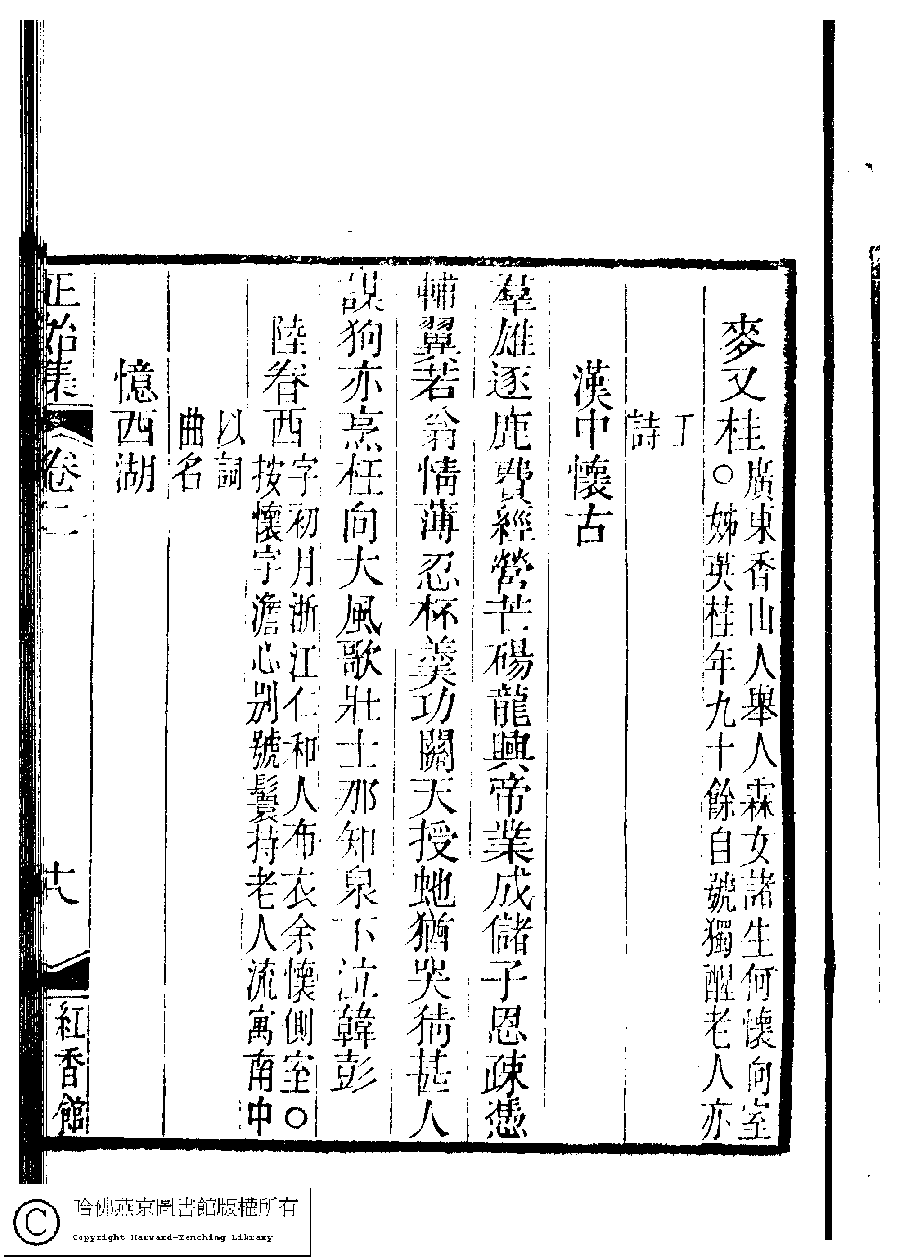 麥又桂
廣東香山人舉人森女諸生何懷向室
○姊英桂年九十餘自號獨醒老人亦
工
詩
漢中懷古
羣雄逐鹿費經營芒碭龍興帝業成儲子恩疎憑
輔翼若翁情薄忍杯羹功關天授虵猶哭猜甚人
謀狗亦烹枉向大風歌壯士那知泉下泣韓彭
陸眷西
字初月浙江仁和人布衣余懷側室○
按懷字澹心別號鬘持老人流寓南中
以詞
曲名
憶西湖
正始集
卷二
十八
紅香館
哈佛燕京圖書館版權所有
Copyright Harvard-Yenching Library